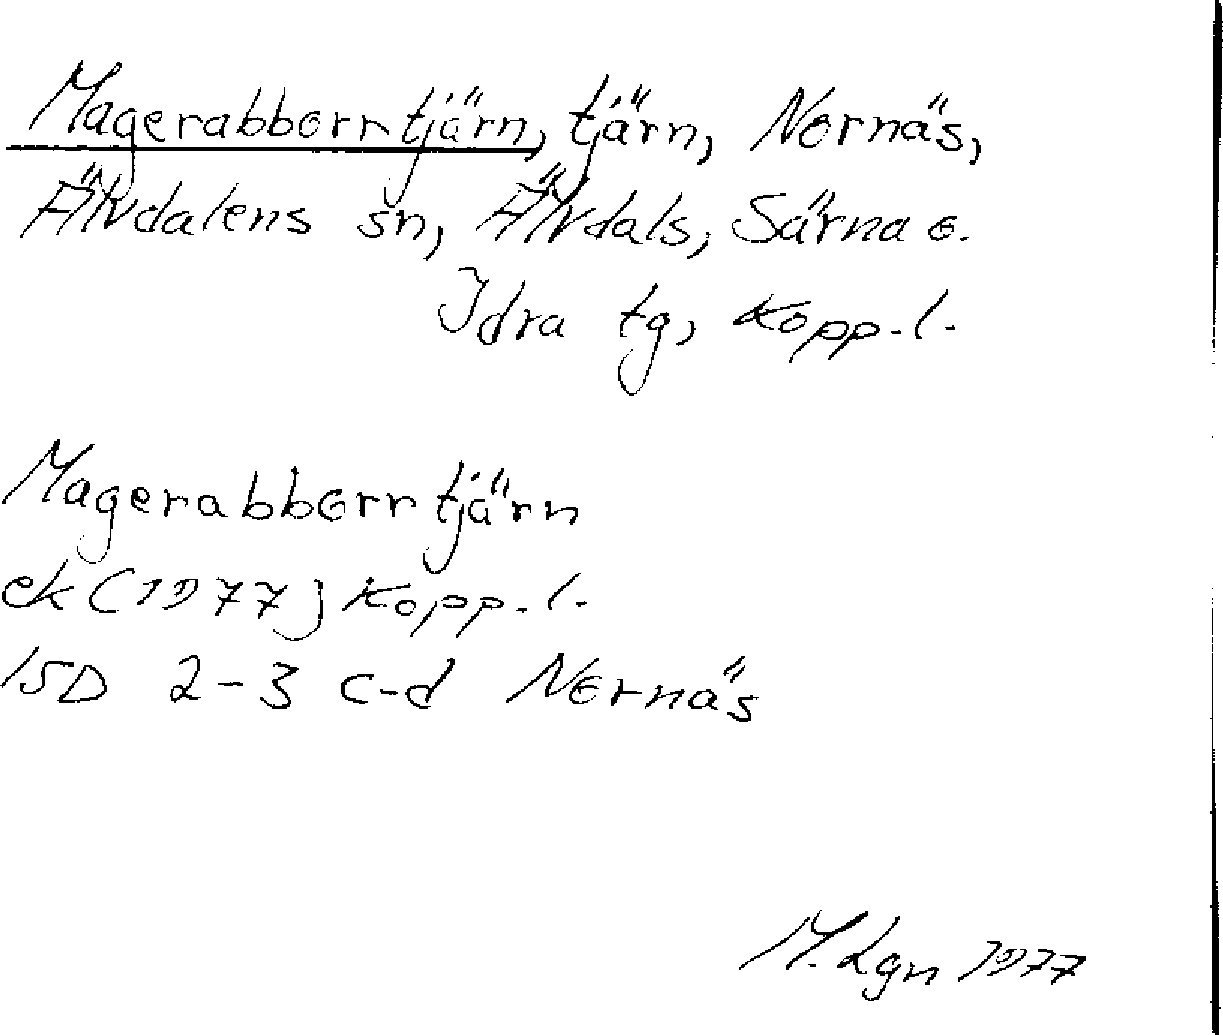 Magerabborrtjärn, tjärn, Nornäs,
Älvdalens sn, Älvdals, Särna o.
Idre tg, Kopp.l.
Magerabborrtjärn
ek (1977) Kopp.l.
15D 2-3 c-d Nornäs
M. Lgn 1977